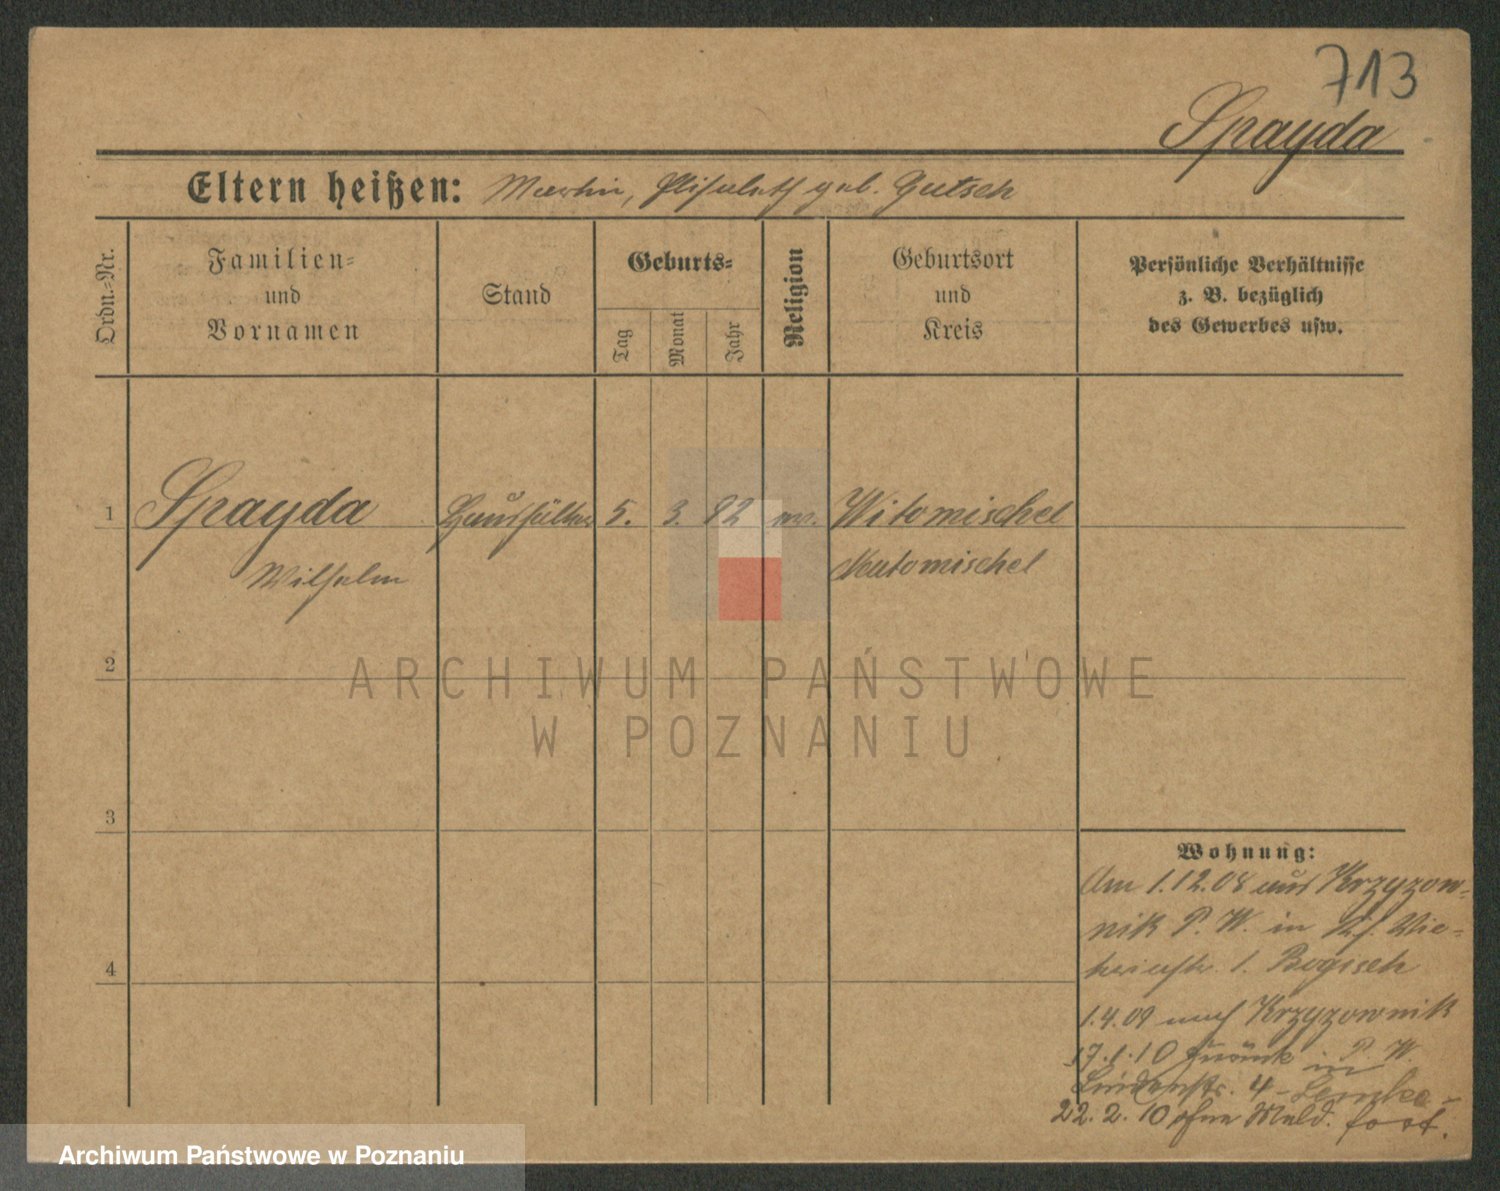 713
Sprayda
Eltern heißen: Martin, Elisabeth geb. Gutsch
Ordn.-Nr.
Familien-
und
Vornamen
Stand
Geburts-
Tag
Monat
Jahr
Religion
Geburtsort
und
Kreis
Persönliche Verhältnisse
z. B. bezüglich
des Gewerbes usw.
1 Sprayda Haushälter 5. 3. 82 ev. Witomischel
Wilhelm Neutomischel
2
ARCHIWUM PAŃSTWOWE
W POZNANIU
3
Wohnung:
Am 1.12.08 aus Krzyzow-
nik P. W. in
1. Bogisch
4
1.4.09 nach Krzyzownik
17.1.10 zurück in P. W.
Lindenstr. 4 - Lemke -
22.2.10 ohne Meld. fort.
Archiwum Państwowe w Poznaniu